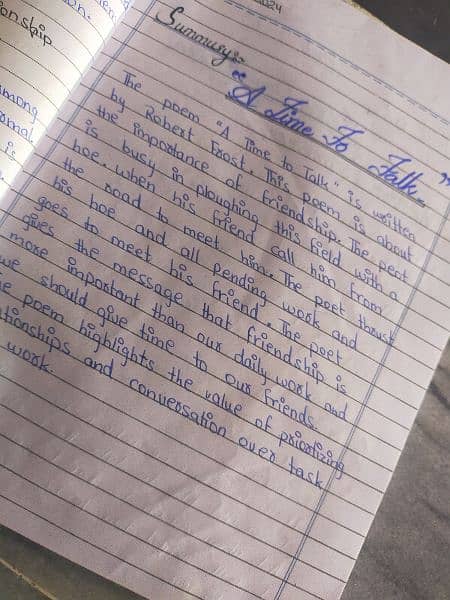 onship
among
rmal
is
2024
Summury:-
"A Time To Talk."
The poem "A Time to Talk" is written
by Robert Frost. This poem is about
the importance of friendship. The poet
is busy in ploughing this field with a
hoe. when his friend call him from
the road to meet him. The poet thrust
his hoe and all pending work and
goes to meet his friend. The poet
gives the message that friendship is
more important than our daily work and
we should give time to our friends.
e poem highlights the value of priortizing
tionships and conversation over task
work.